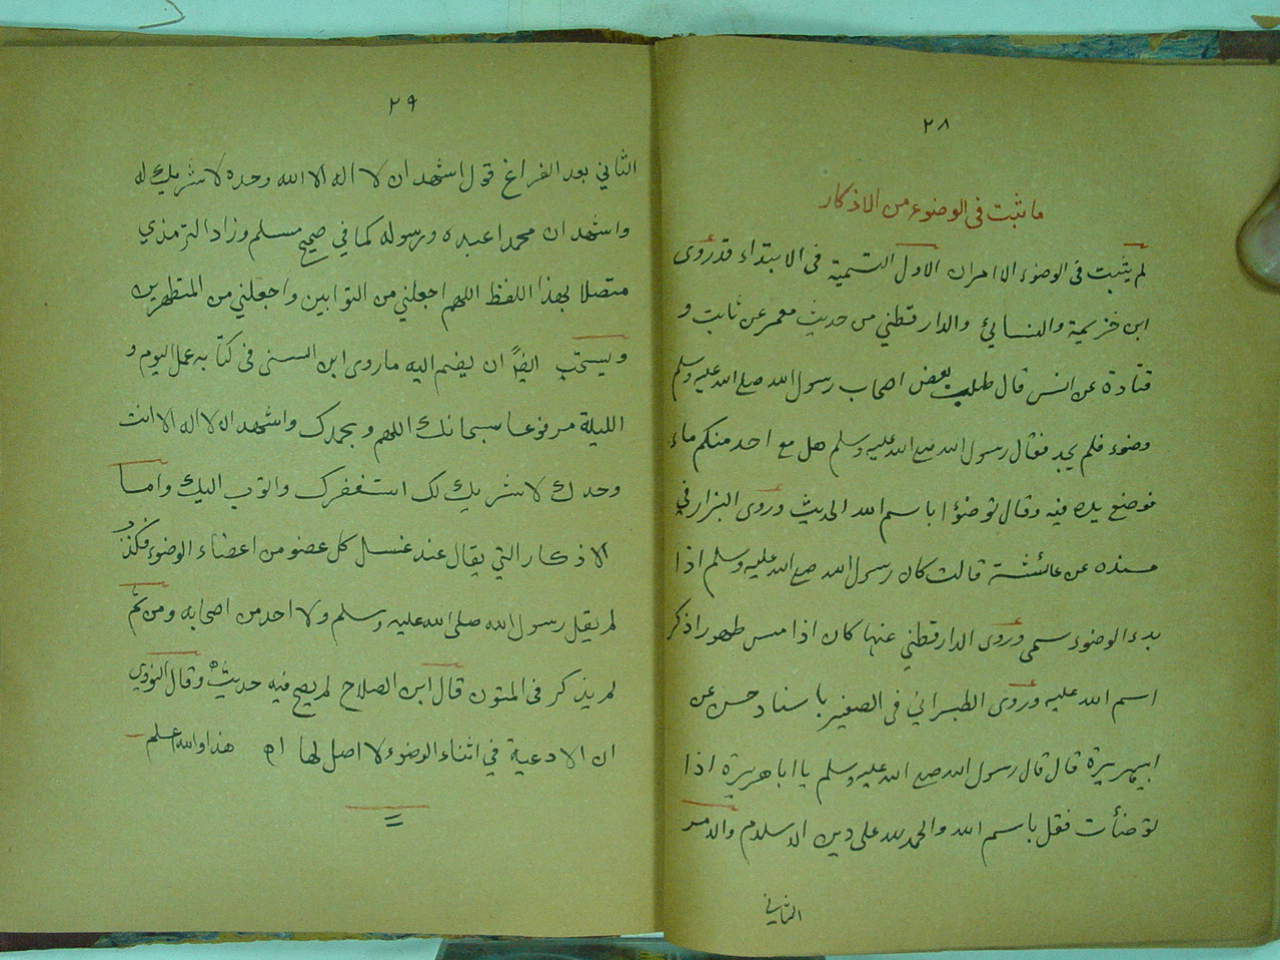 ٢٨
ما ثبت فى الوضوء من الاذكار
لم يثبت فى الوضوء الا امران الاول التسمية فى الابتداء قد روى
ابن خزيمة والنسائي والدارقطني من حديث معمر عن ثابت و
قتادة عن انس قال طلب بعض اصحاب رسول الله صلى الله عليه وسلم
وضوء فلم يجد فقال رسول الله صلى الله عليه وسلم هل مع احد منكم ماء
فوضع يده فيه وقال توضؤا باسم الله الحديث وروى البزار في
مسنده عن عائشة قالت كان رسول الله صلى الله عليه وسلم اذا
بدء الوضوء سمى وروى الدارقطني عنها كان اذا مس طهورا ذكر
اسم الله عليه وروى الطبراني فى الصغير باسناد حسن عن
ابيهريرة قال قال رسول الله صلى الله عليه وسلم يا ابا هريرة اذا
توضأت فقل باسم الله والحمد لله على دين الاسلام والامر
الثاني
٢٩
الثاني بعد الفراغ قول اشهد ان لا اله الا الله وحده لا شريك له
واشهد ان محمدا عبده ورسوله كما في صحيح مسلم وزاد الترمذي
متصلا بهذا اللفظ اللهم اجعلني من التوابين واجعلني من المتطهرين
ويستحب ايضاً ان يضم اليه ما روى ابن السنى فى كتابه عمل اليوم و
الليلة مرفوعا سبحانك اللهم وبحمدك واشهد ان لا اله الا انت
وحدك لا شريك لك استغفرك واتوب اليك واما
الاذكار التي يقال عند غسل كل عضو من اعضاء الوضوء فكذب
لم يقل رسول الله صلى الله عليه وسلم ولا احد من اصحابه ومن ثم
لم يذكر فى المتون قال ابن الصلاح لم يصح فيه حديث وقال النووي
ان الادعية في اثناء الوضوء لا اصل لها اه هذا والله اعلم